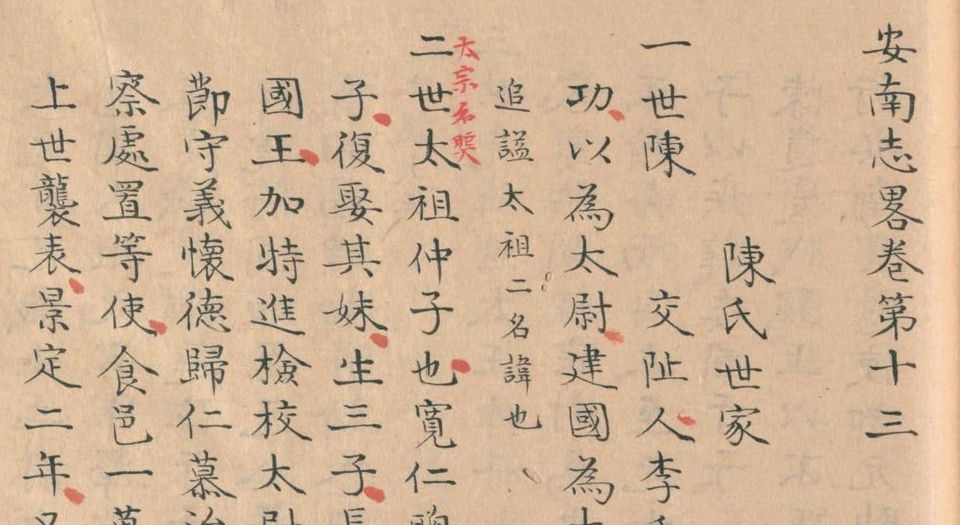 安南志畧巻第十三
陳氏世家
一世陳 交阯人李
功以為太尉建國為
追謚太祖二名諱也
太宗名煚
二世太祖仲子也寛仁
子復娶其妹生三子長
國王加特進檢校太尉
節守義懷德歸仁慕治
察處置等使食邑一萬
上世襲表景定二年又